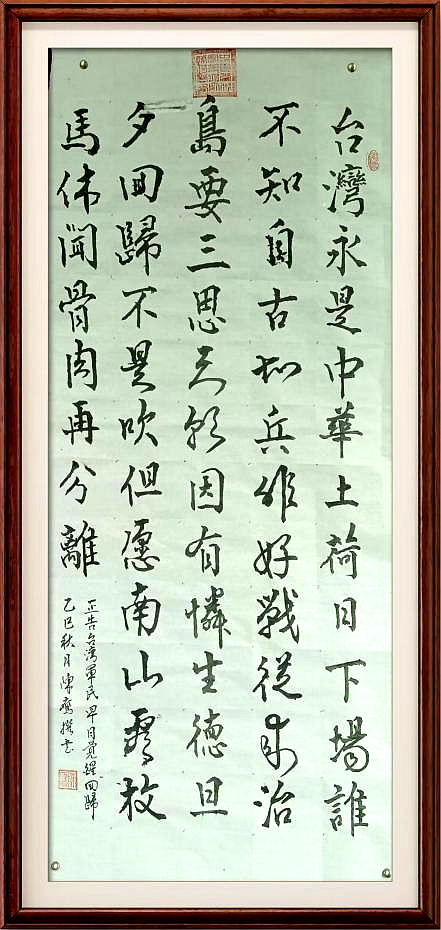 台灣永是中華土荷日下場誰
不知自古知兵非好戰從來治
島要三思天朝因有憐生德旦
夕回歸不是吹但愿南山牧
馬休聞骨肉再分離
正告台湾軍民早日覺醒回歸
乙巳秋月陳撰書